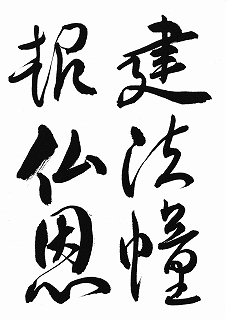 建法幢
報仏恩